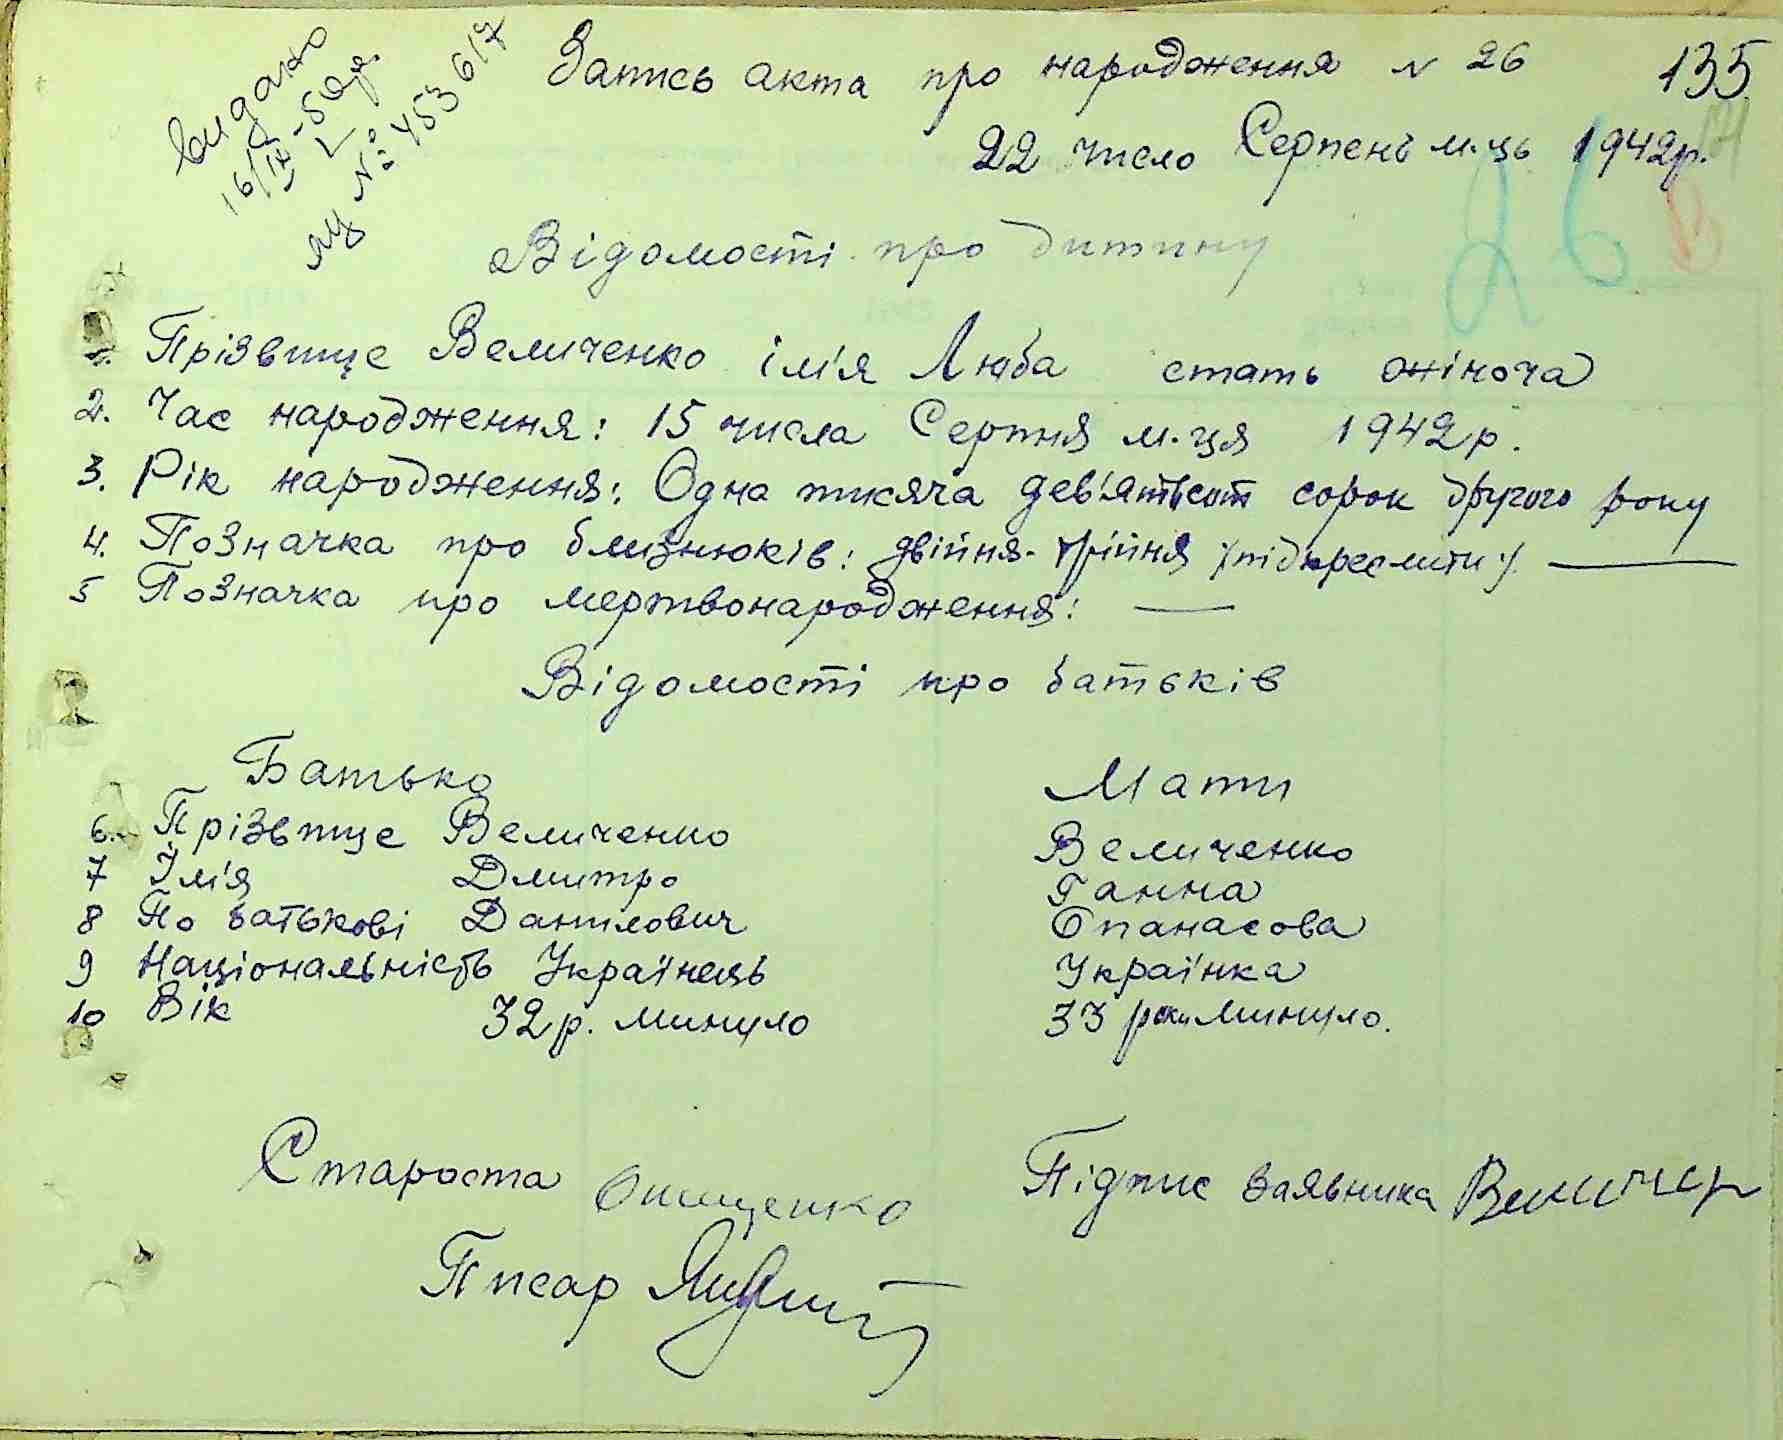 видано
16/IX-50р.
яц № 453617
Запись акта про народження № 26 135
22 число Серпень м-ць 1942р.
26
Відомості про дитину
1. Прізвище Величенко ім'я Люба стать жіноча
2. Час народження: 15 числа Серпня м-ця 1942р.
3. Рік народження: Одна тисяча дев'ятьсот сорок другого року
4. Позначка про близнюків: двійня- трійня /підкреслити/. —
5 Позначка про мертвонародження: —
Відомості про батьків
Батько Мати
6. Прізвище Величенко Величенко
7 Ім'я Дмитро Ганна
8 По батькові Данилович Опанасова
9 Національність Українець Українка
10 Вік 32р. минуло 33 роки минуло.
Староста Онищенко Підпис заявника Величен
Писар